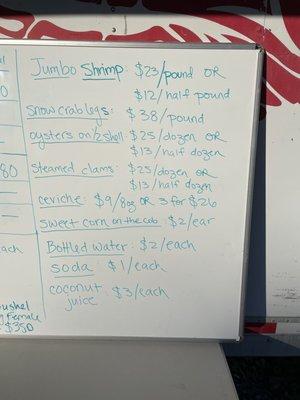 Jumbo Shrimp: $23/pound OR
$12/half pound
snow crab legs: $38/pound
oysters on 1/2 shell: $25/dozen OR
$13/half dozen
steamed clams: $25/dozen OR
$13/half dozen
ceviche: $9/8oz OR 3 for $26
sweet corn on the cob: $2/ear
Bottled Water: $2/each
soda: $1/each
coconut juice: $3/each
80
each
ushel
Female
$350